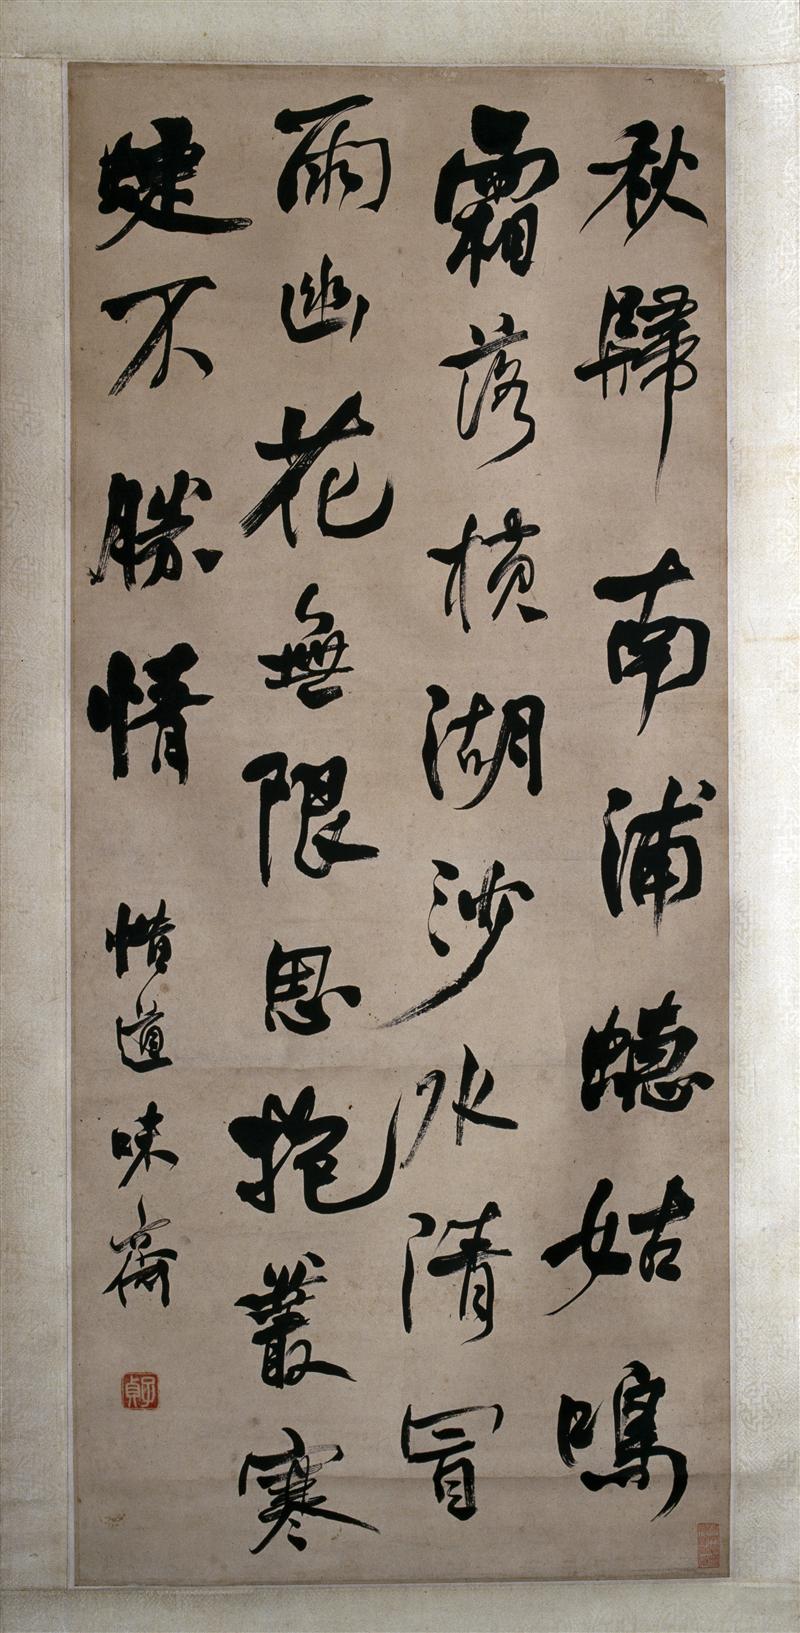 秋歸南浦蟪姑鳴
霜落橫湖沙水清冒
雨幽花無限思抱叢寒
蜨不勝情
惜道味齋
子貞